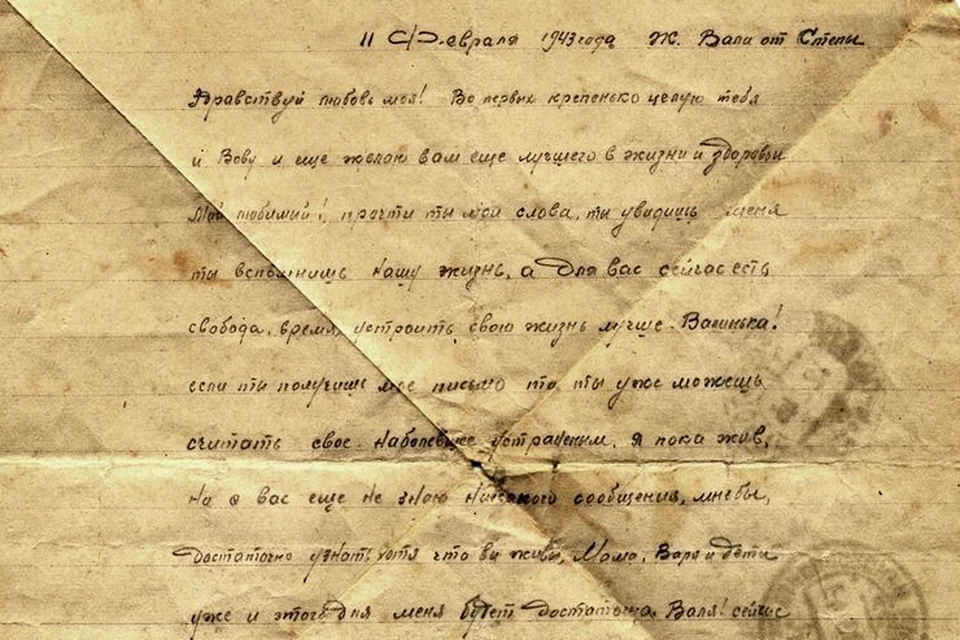 11 Февраля 1943 года Ж. Вали от Степы
Здравствуй любовь моя! Во первых крепенько целую тебя
и Вову и еще желаю вам еще лучшего в жизни и здоровьи
Мой любимий! прочти ты мои слова, ты увидишь меня
ты вспомнишь нашу жизнь, а для вас сейчас есть
свобода, время, устроить свою жизнь лучше. Валинька!
если ты получишь мое письмо то, ты уже можешь
считать свое наболевшее устраненим. Я пока жив,
Но о вас еще не знаю никакого сообщения, мне бы,
достаточно узнать хотя что ви живи, Мама, Варя и дети
уже и этого для меня будет достаточно. Валя! сейчас